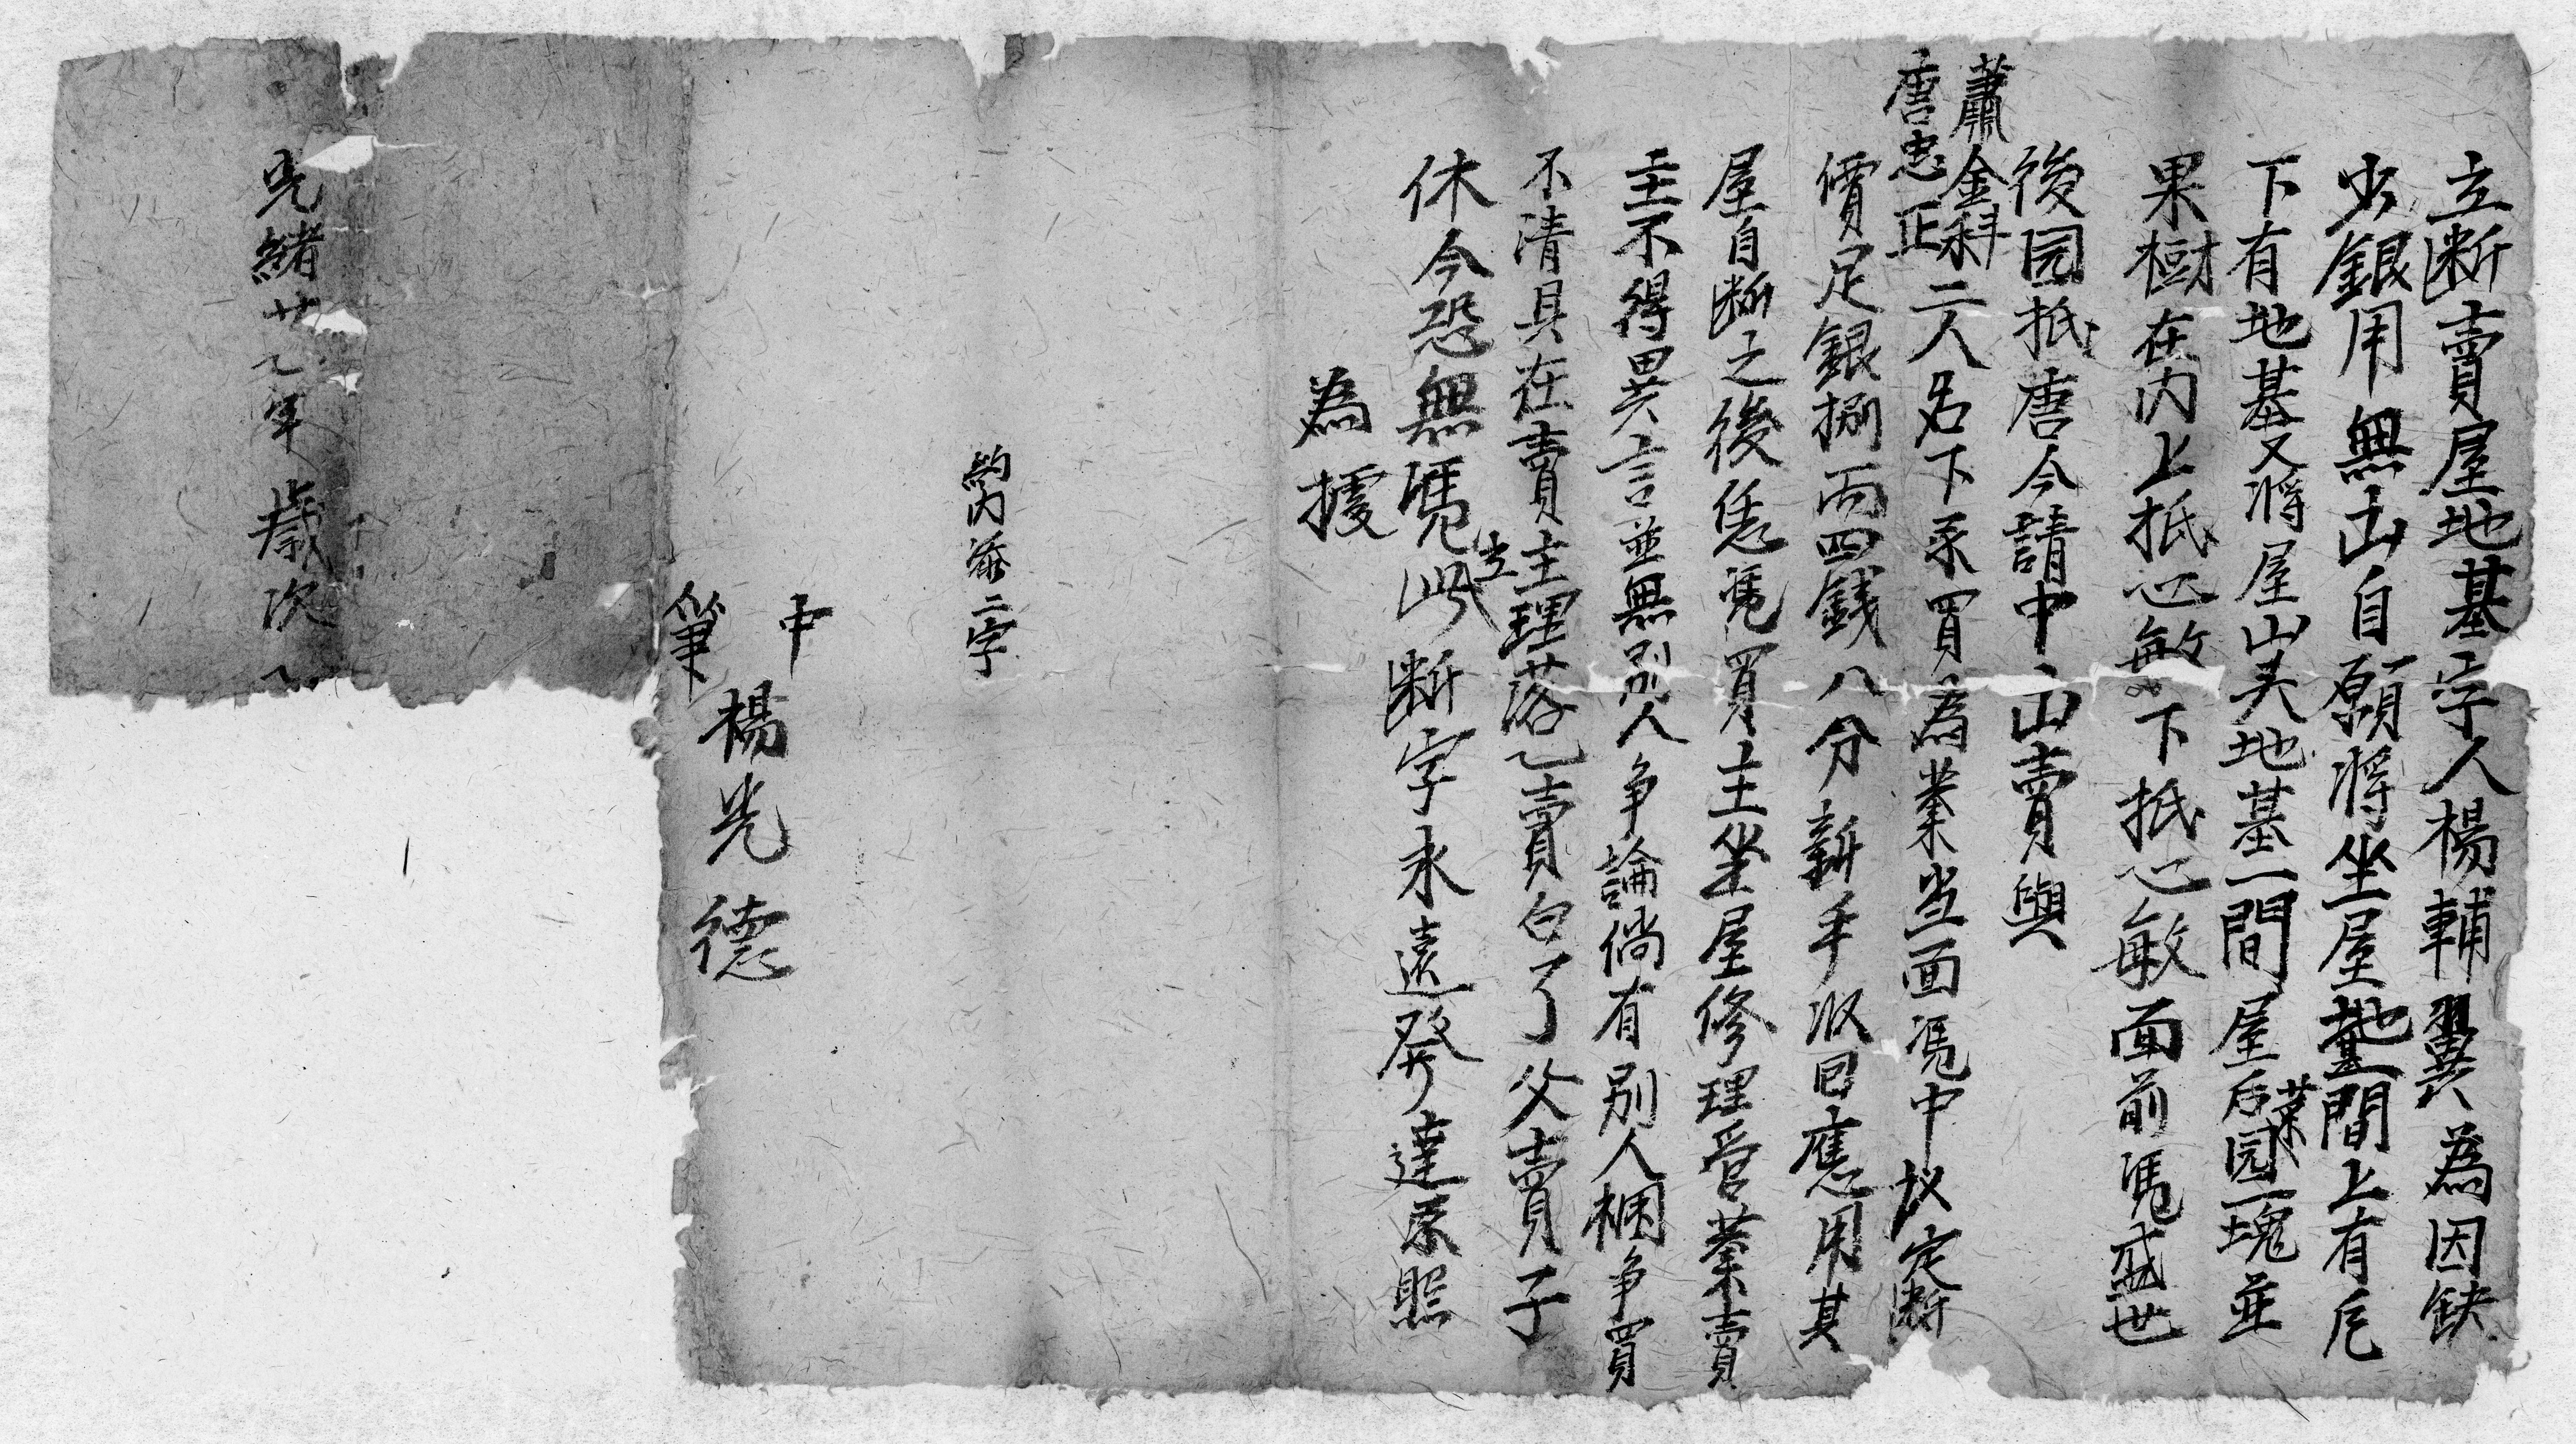 立断賣屋地基字人楊輔翼為因缺
少銀用無出自願將坐屋地基間上有瓦
下有地基又將屋山头地基一間屋后菜园一塊並
果樹在内上抵心敏下抵心敏面前憑盛世
後园抵唐今請中出賣與
蕭金科
唐忠正
二人名下承買為業当面憑中议定断
價足銀捌两四錢八分新手收回應用其
屋自断之後恁憑買主坐屋修理管業賣
主不得異言並無別人争論倘有別人梱争買
不清具在賣主理落乙賣乙了父賣子
休今恐無憑立此断字永遠發達存照
為據
約内添二字
中
筆
楊光德
光緒廿乙年歲次乙